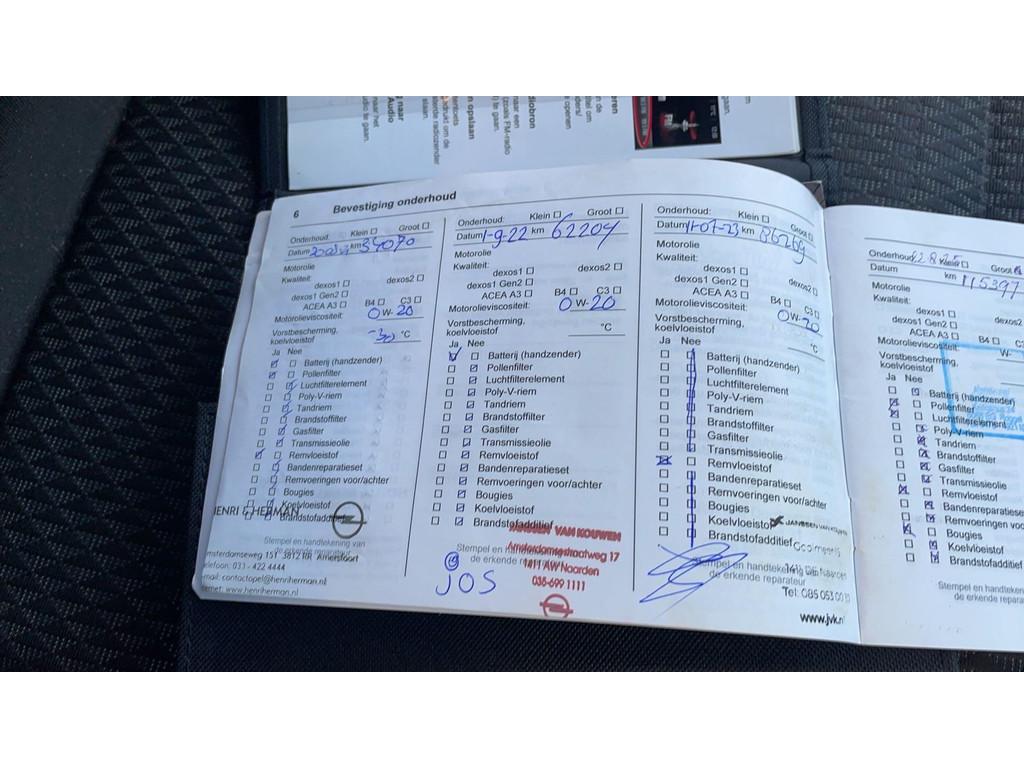 6 Bevestiging onderhoud
Onderhoud: Klein Groot
Datum km 34070
Motorolie
Kwaliteit:
dexos1 dexos2
dexos1 Gen2
ACEA A3 B4 C3
Motorolieviscositeit: 0 W- 20
Vorstbescherming,
koelvloeistof -30 °C
Ja Nee
Batterij (handzender)
Pollenfilter
Luchtfilterelement
Poly-V-riem
Tandriem
Brandstoffilter
Gasfilter
Transmissieolie
Remvloeistof
Bandenreparatieset
Remvoeringen voor/achter
Bougies
Koelvloeistof
Brandstofadditief
HENRI & HERMAN
Stempel en handtekening van
de erkende reparateur
Amsterdamseweg 151 3812 RR Amersfoort
Telefoon: 033 - 422 4444
mail: contactopel@henriherman.nl
www.henriherman.nl
Onderhoud: Klein Groot
Datum 1-9-22 km 62204
Motorolie
Kwaliteit:
dexos1 dexos2
dexos1 Gen2
ACEA A3 B4 C3
Motorolieviscositeit: 0 W- 20
Vorstbescherming,
koelvloeistof °C
Ja Nee
Batterij (handzender)
Pollenfilter
Luchtfilterelement
Poly-V-riem
Tandriem
Brandstoffilter
Gasfilter
Transmissieolie
Remvloeistof
Bandenreparatieset
Remvoeringen voor/achter
Bougies
Koelvloeistof
Brandstofadditief
JANSSEN VAN KOUWEN
Stempel en handtekening
de erkende reparateur
Amsterdamsestraatweg 17
1411 AW Naarden
035-699 1111
JOS
Onderhoud: Klein Groot
Datum 11-07-23 km 86269
Motorolie
Kwaliteit:
dexos1 dexos2
dexos1 Gen2
ACEA A3 B4 C3
Motorolieviscositeit: 0 W- 20
Vorstbescherming,
koelvloeistof °C
Ja Nee
Batterij (handzender)
Pollenfilter
Luchtfilterelement
Poly-V-riem
Tandriem
Brandstoffilter
Gasfilter
Transmissieolie
Remvloeistof
Bandenreparatieset
Remvoeringen voor/achter
Bougies
Koelvloeistof
Brandstofadditief
JANSSEN VAN KOUWEN
Stempel en handtekening
de erkende reparateur
Tel: 085 053 00
www.jvk.nl
Onderhoud: Klein Groot
Datum km 115397
Motorolie
Kwaliteit:
dexos1
dexos1 Gen2
ACEA A3 B4 C3
Motorolieviscositeit: W-
Vorstbescherming,
koelvloeistof
Ja Nee
Batterij (handzender)
Pollenfilter
Luchtfilterelement
Poly-V-riem
Tandriem
Brandstoffilter
Gasfilter
Transmissieolie
Remvloeistof
Bandenreparatieset
Remvoeringen voor
Bougies
Koelvloeistof
Brandstofadditief
Stempel en handteken
de erkende repara